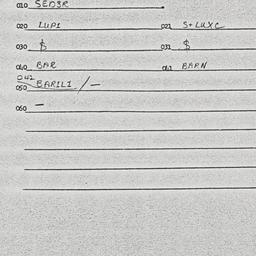 010 SED3R
020 LUPI 022 S+LUXC
030 $ 032 $
040 BAR 042 BARN
042
050 BARILI / —
060 —